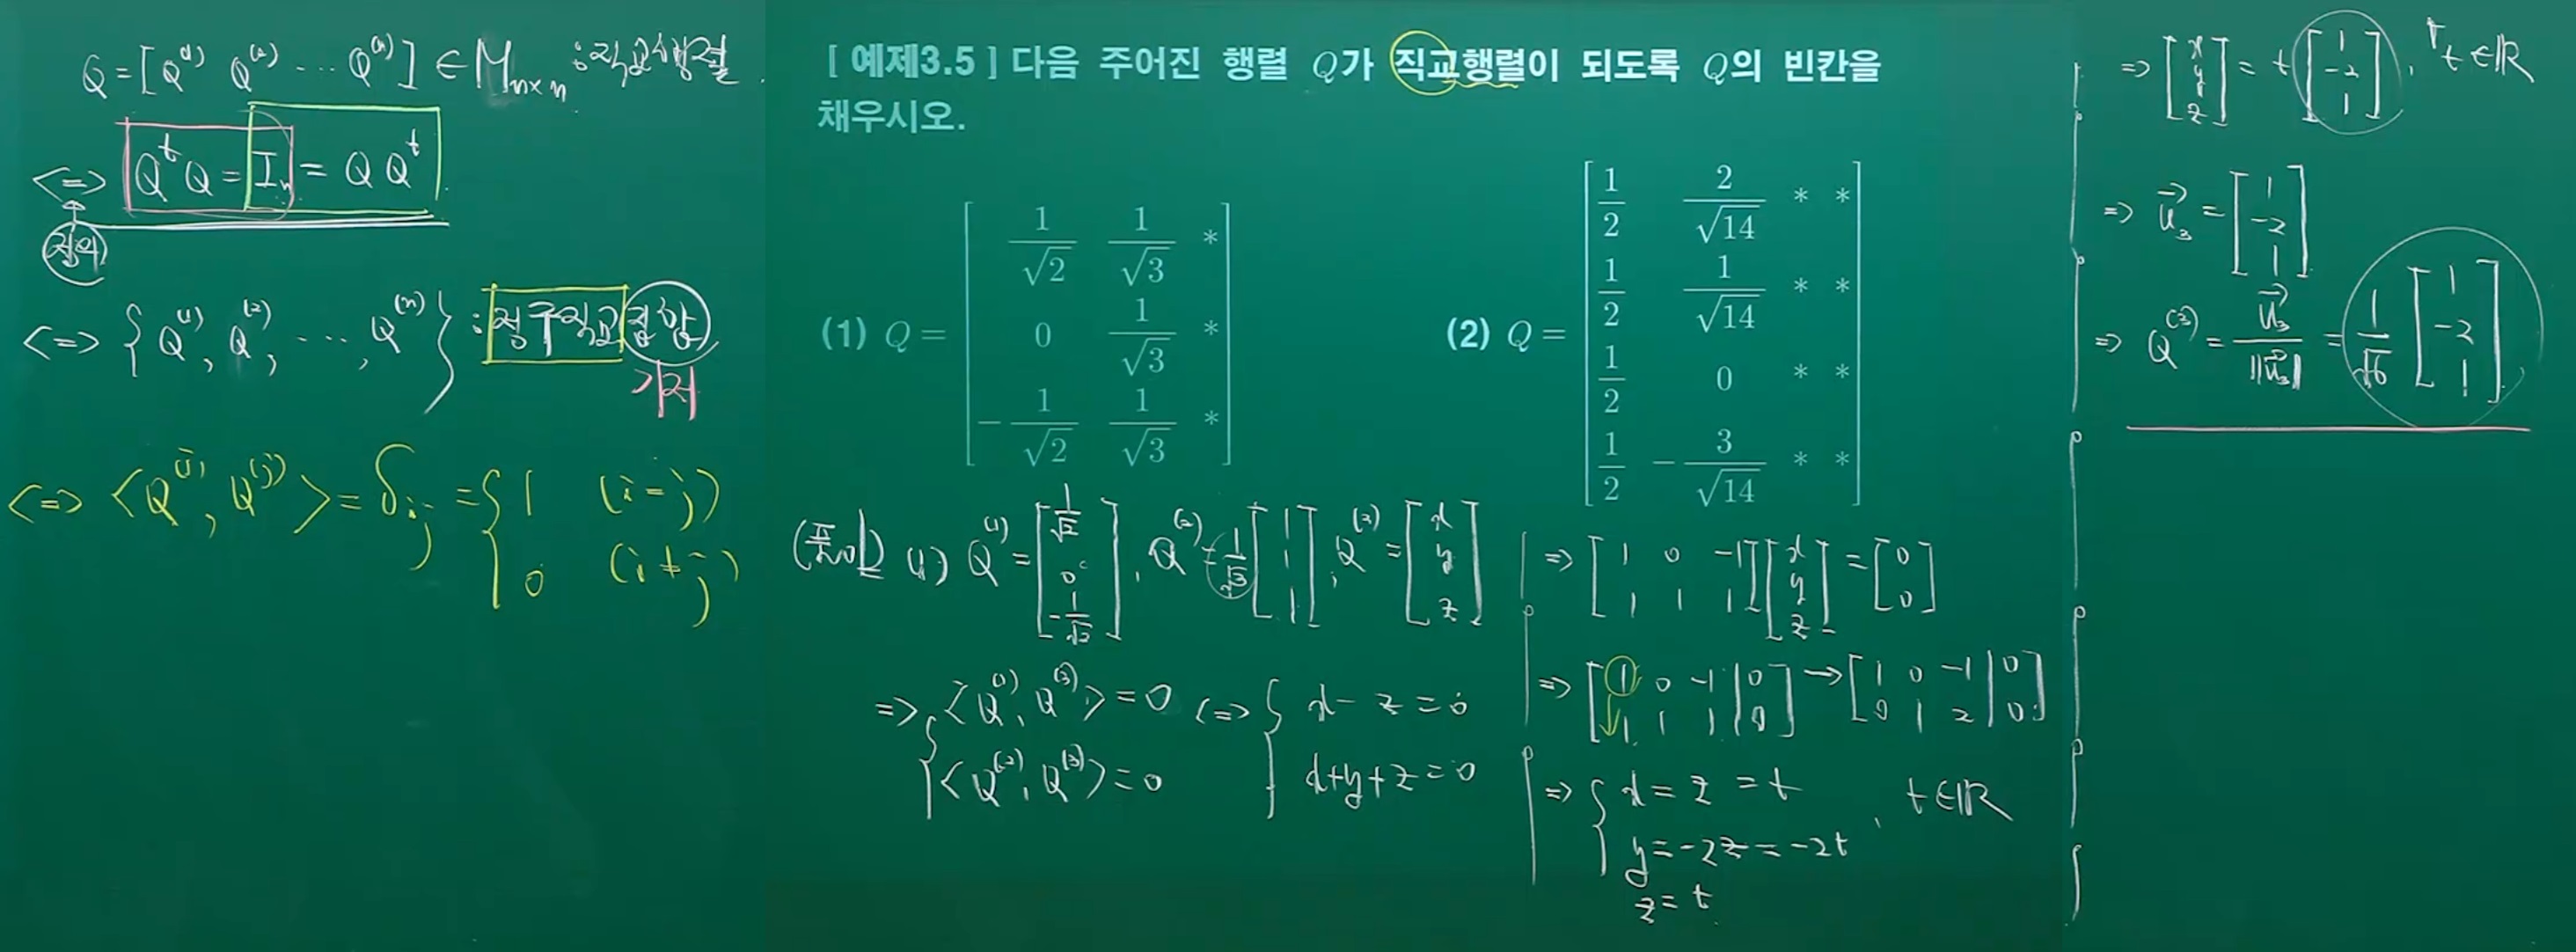 Q = [Q⁽¹⁾ Q⁽²⁾ ⋯ Q⁽ⁿ⁾] ∈ M_{n×n} : 직교행렬.
<=> QᵗQ = Iₙ = QQᵗ
정의
<=> {Q⁽¹⁾, Q⁽²⁾, ⋯, Q⁽ⁿ⁾} : 정규직교집합
기저
<=> <Q⁽ⁱ⁾, Q⁽ʲ⁾> = δ_{ij} = { 1 (i=j)
0 (i≠j)
[ 예제3.5 ] 다음 주어진 행렬 Q가 직교행렬이 되도록 Q의 빈칸을
채우시오.
(1) Q = [ 1/√2 1/√3 *
0 1/√3 *
-1/√2 1/√3 * ]
(2) Q = [ 1/2 2/√14 * *
1/2 1/√14 * *
1/2 0 * *
1/2 -3/√14 * * ]
(풀이) (1) Q⁽¹⁾ = [ 1/√2 0 -1/√2 ], Q⁽²⁾ = 1/√3 [ 1 1 1 ], Q⁽³⁾ = [ x y z ]
=> { <Q⁽¹⁾, Q⁽³⁾> = 0 <=> { x - z = 0
<Q⁽²⁾, Q⁽³⁾> = 0 x+y+z = 0
=> [ 1 0 -1 ; 1 1 1 ] [ x y z ] = [ 0 0 ]
=> [ 1 0 -1 | 0 ; 1 1 1 | 0 ] → [ 1 0 -1 | 0 ; 0 1 2 | 0 ]
=> { x = z = t , t ∈ ℝ
y = -2z = -2t
z = t
=> [ x y z ] = t [ 1 -2 1 ], ∀t ∈ ℝ
=> u⃗₃ = [ 1 -2 1 ]
=> Q⁽³⁾ = u⃗₃/‖u⃗₃‖ = 1/√6 [ 1 -2 1 ]